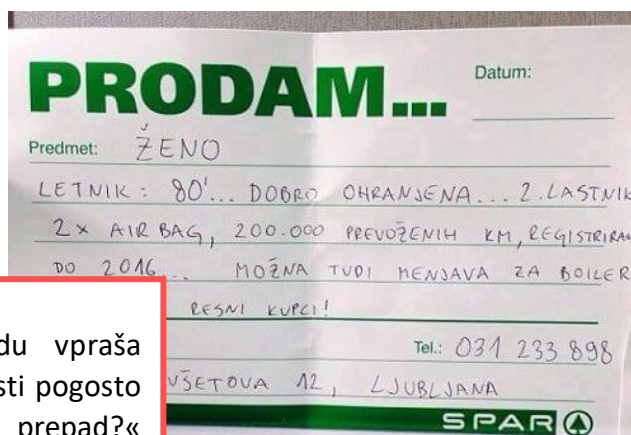 PRODAM...
Datum:
Predmet: ŽENO
LETNIK: 80'... DOBRO OHRANJENA... 2. LASTNIK
2x AIRBAG, 200.000 PREVOŽENIH KM, REGISTRIRAN
DO 2016... MOŽNA TUDI MENJAVA ZA BOILER
RESNI KUPCI!
Tel.: 031 233 898
VŠETOVA 12, LJUBLJANA
SPAR
du vpraša
sti pogosto
prepad?«